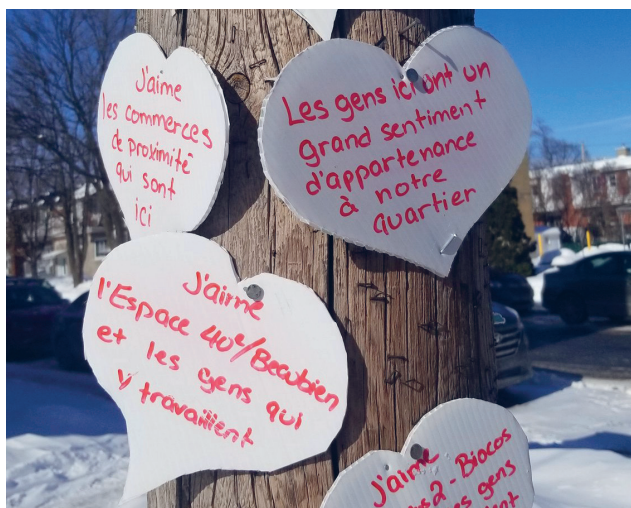 J'aime
les commerces
de proximité
qui sont
ici
Les gens ici ont un
grand sentiment
d'appartenance
à notre
quartier
J'aime
l'Espace 40e/Beaubien
et les gens qui
y travaillent
J'aime
2 - Biocos
gens